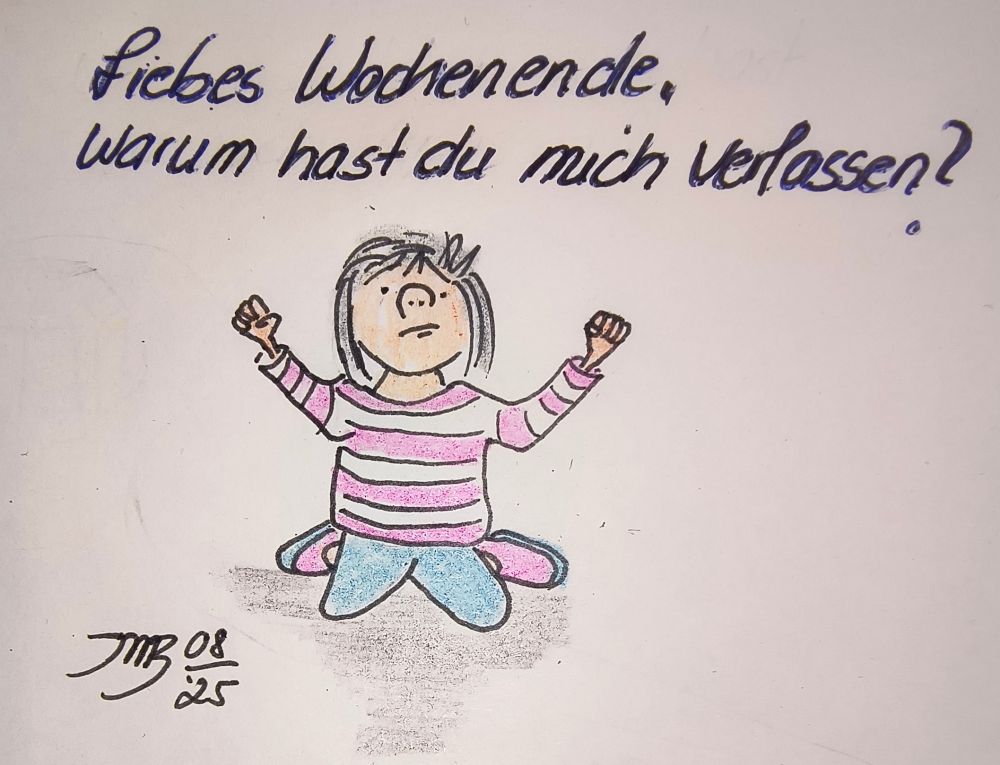 Liebes Wochenende.
Warum hast du mich verlassen?
JMB 08
'25